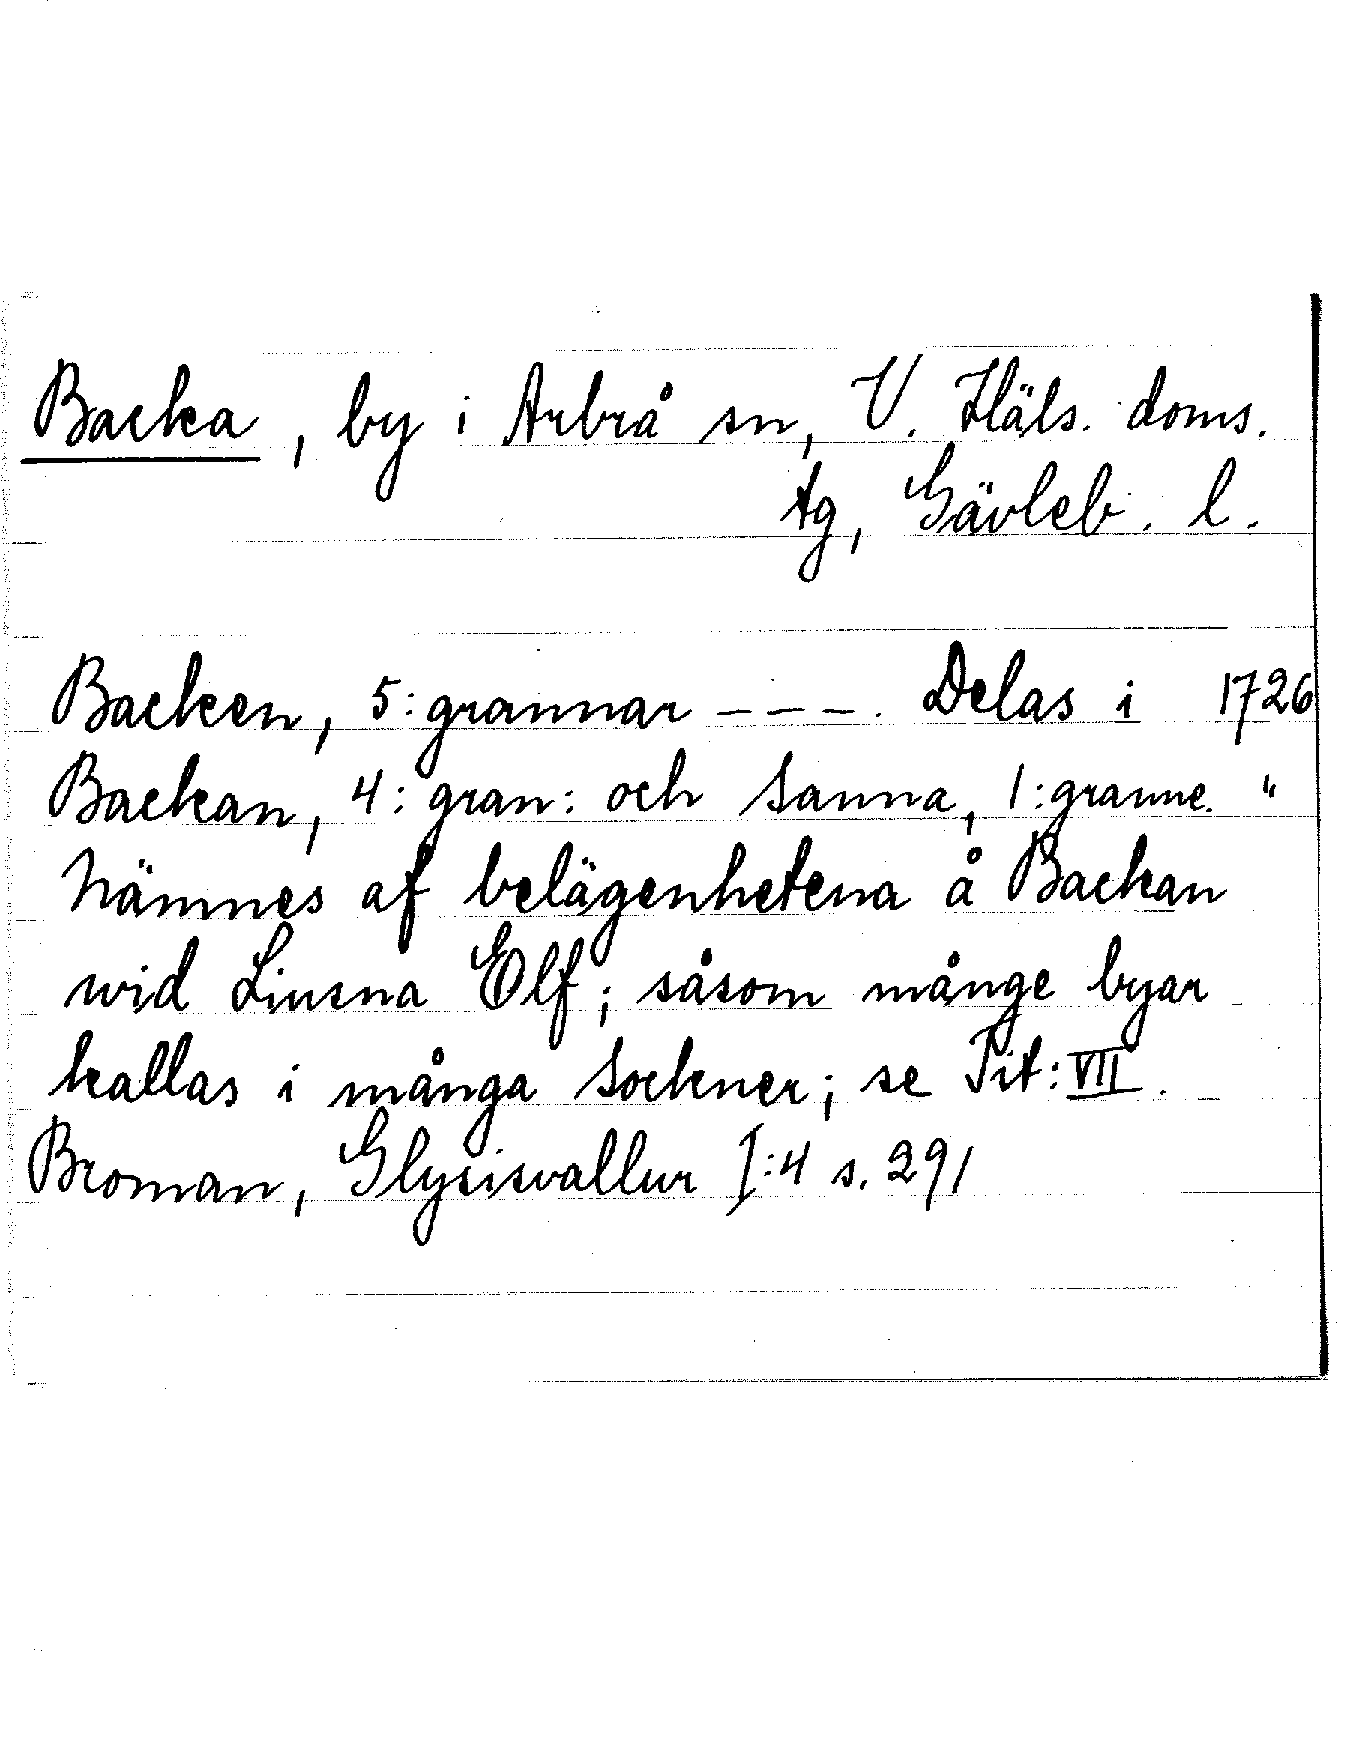 Backa, by i Arbrå sn, V. Häls. doms.
tg, Gävleb. l.
Backen, 5: grannar – – –. Delas i 1726
Backan, 4: gran: och Sanna, 1: granne. "
Nämnes af belägenhetena å Backan
wid Liusna Elf; såsom månge byar
kallas i många Sockner; se Tit: VII.
Broman, Glysisvallur I:4 s. 291